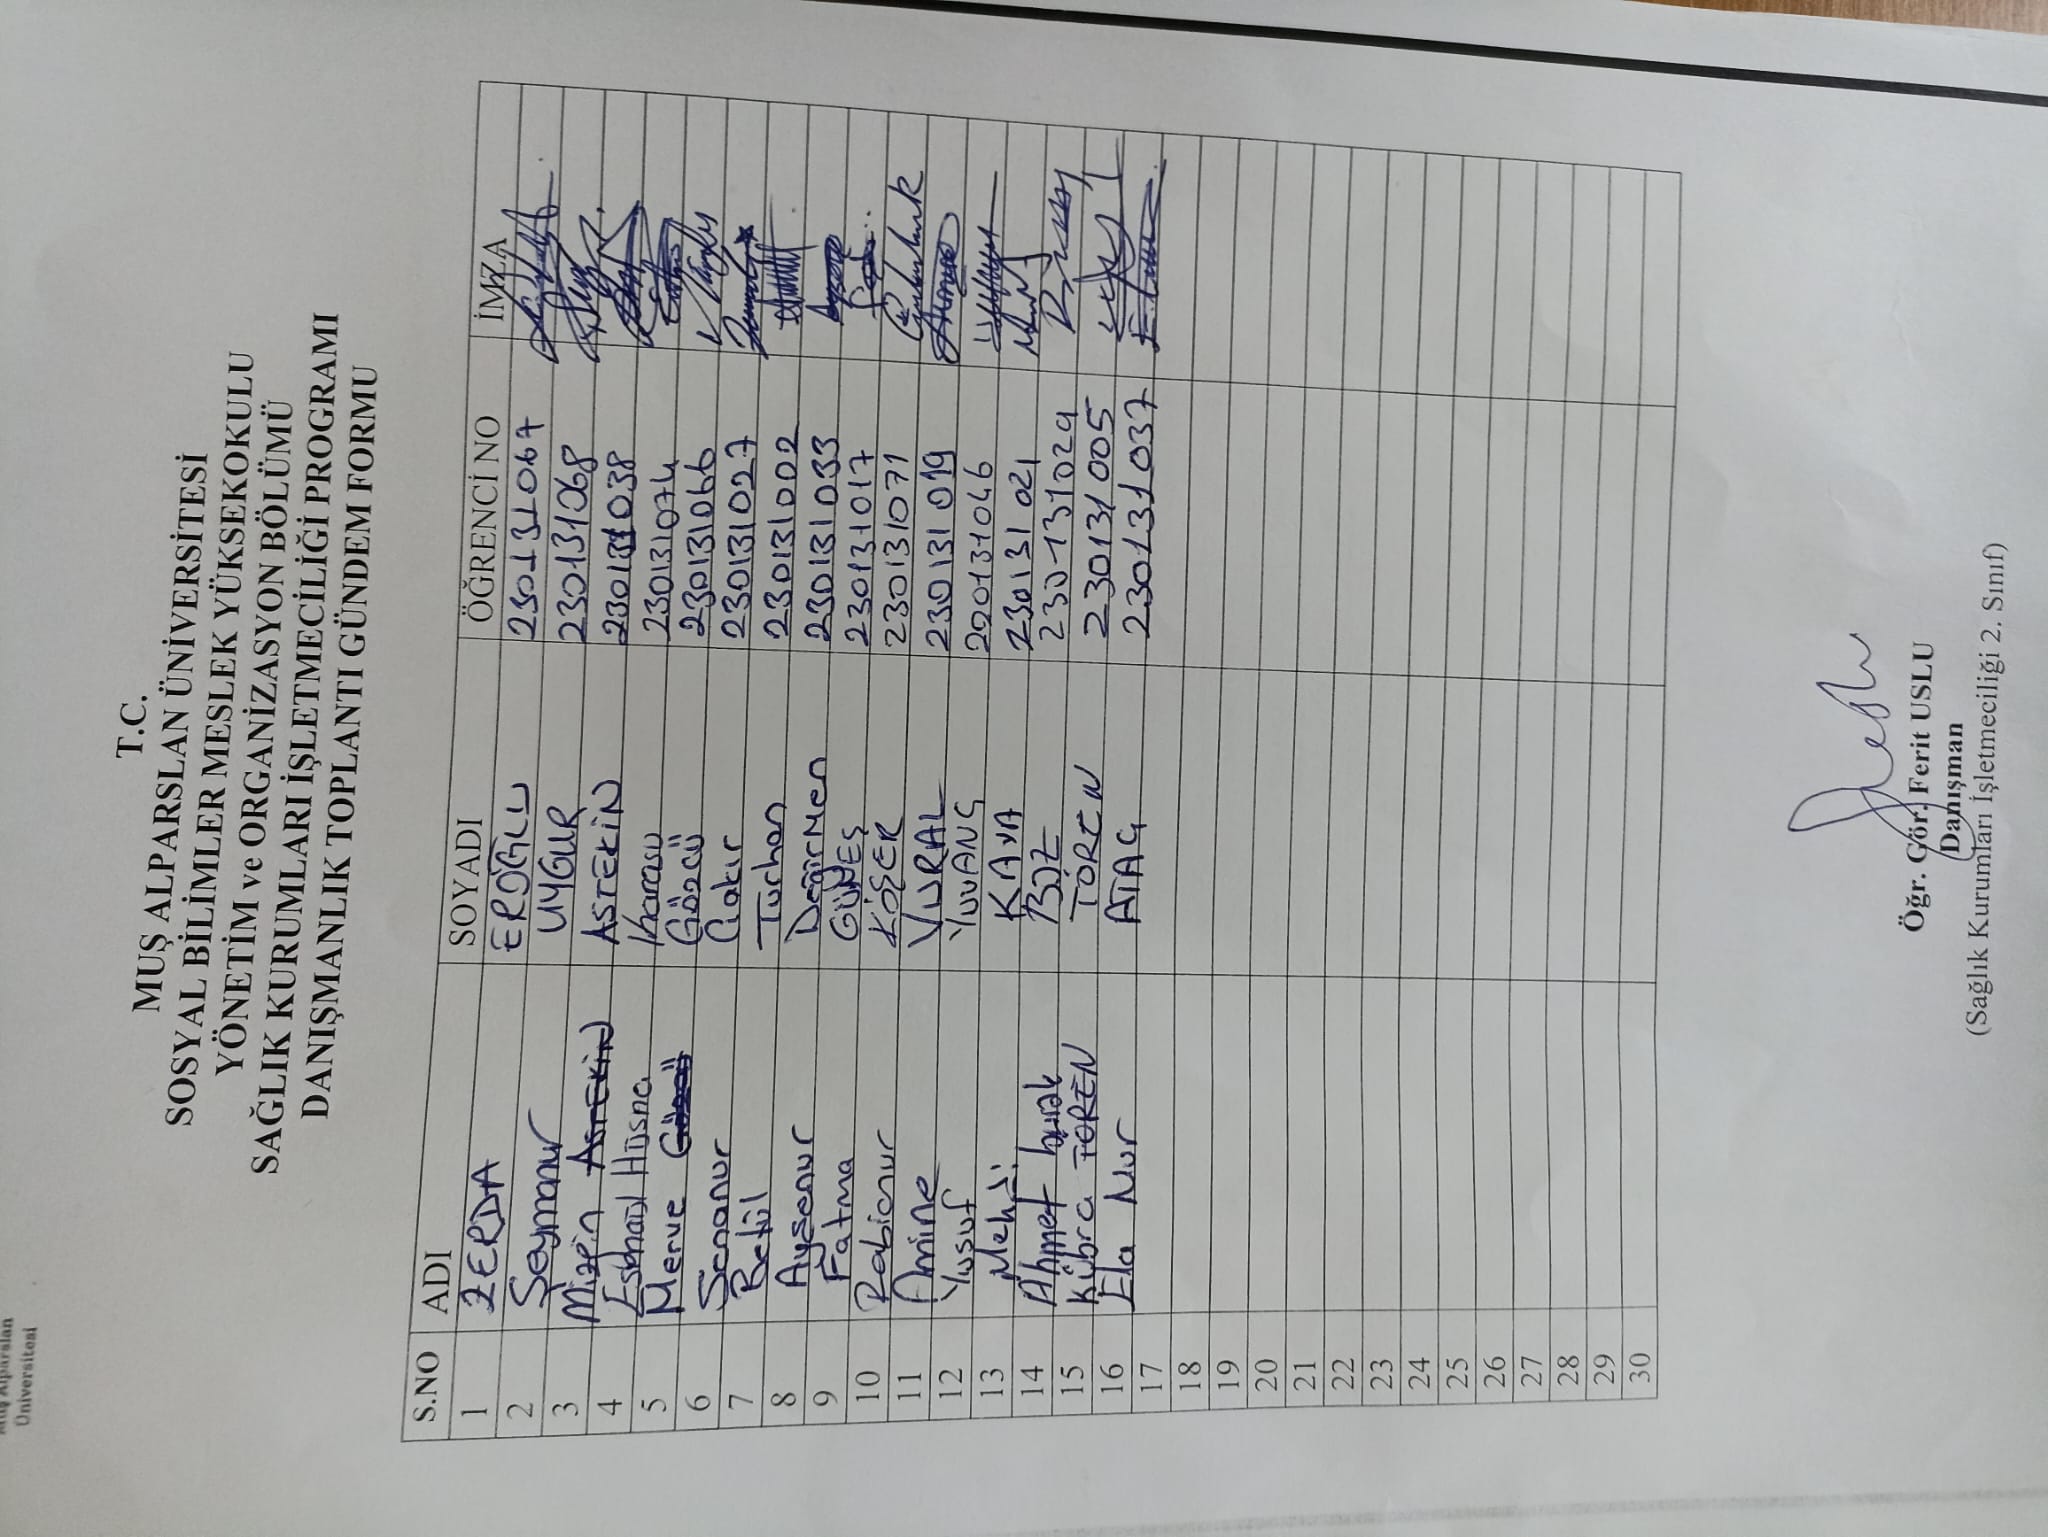 Muş Alparslan
Üniversitesi
T.C.
MUŞ ALPARSLAN ÜNİVERSİTESİ
SOSYAL BİLİMLER MESLEK YÜKSEKOKULU
YÖNETİM ve ORGANİZASYON BÖLÜMÜ
SAĞLIK KURUMLARI İŞLETMECİLİĞİ PROGRAMI
DANIŞMANLIK TOPLANTI GÜNDEM FORMU
S.NO ADI SOYADI ÖĞRENCİ NO İMZA
1 ZERDA EROĞLU 230131067
2 Şeymanur UYGUR 230131068
3 Mizgin ASTEKİN 230131038
4 Esmaül Hüsna Karasu 230131074
5 Merve Gözcü 230131066
6 Senanur Çakır 230131027
7 Betül Turhan 230131002
8 Ayşenur Değirmen 230131033
9 Fatma GÜNEŞ 230131017
10 Rabianur KÖŞER 230131071
11 Amine VURAL 230131019
12 Yusuf YUVANÇ 220131046
13 Mehdi KAYA 230131021
14 Ahmet burak BOZ 230131024
15 Kübra TÖREN TÖREN 230131005
16 Ela Nur ATAÇ 230131037
17
18
19
20
21
22
23
24
25
26
27
28
29
30
Öğr. Gör. Ferit USLU
Danışman
(Sağlık Kurumları İşletmeciliği 2. Sınıf)